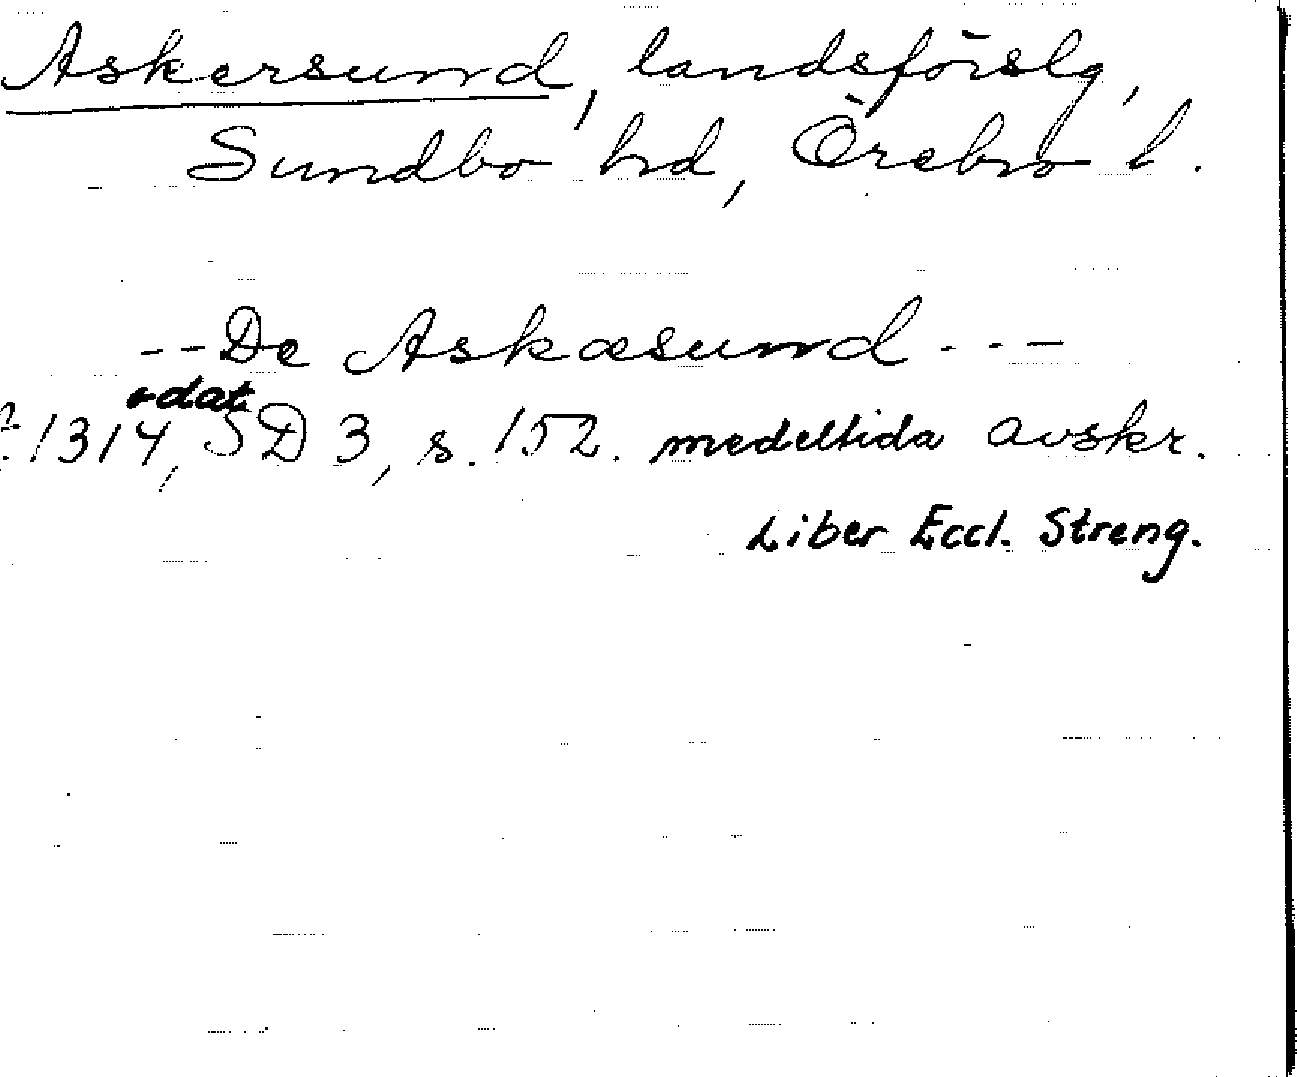 Askersund, landsförslg,
Sundbo hd, Örebro l.
-- De Askæsund - - -
odat
1314, SD 3, s. 152. medeltida avskr.
Liber Eccl. Streng.